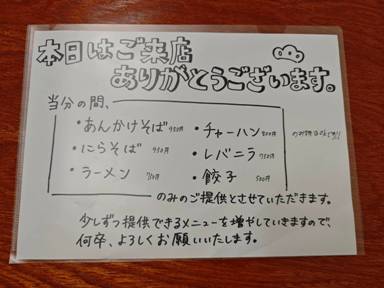 本日はご来店
ありがとうございます。
当分の間、
・あんかけそば 950円 ・チャーハン 800円
・にらそば 950円 ・レバニラ 950円
・ラーメン ・餃子 500円
のみのご提供とさせていただきます。
少しずつ提供できるメニューを増やしていきますので、
何卒、よろしくお願いいたします。